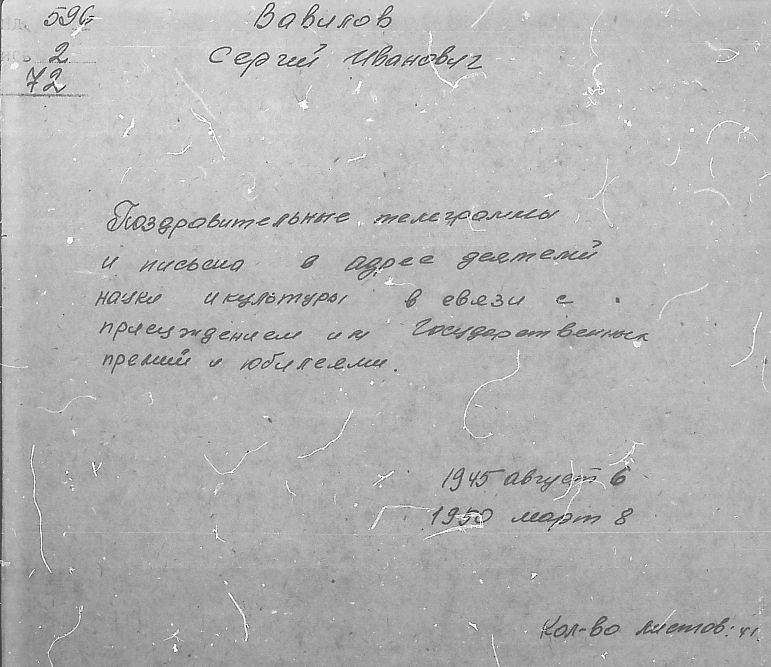 596
Вавилов
2
Сергей Иванович
72
Поздравительные телеграммы
и письма в адрес деятелей
науки и культуры в связи с
присуждением им Государственных
премий и юбилеями.
1945 август 6
1950 март 8
Кол-во листов: 41.